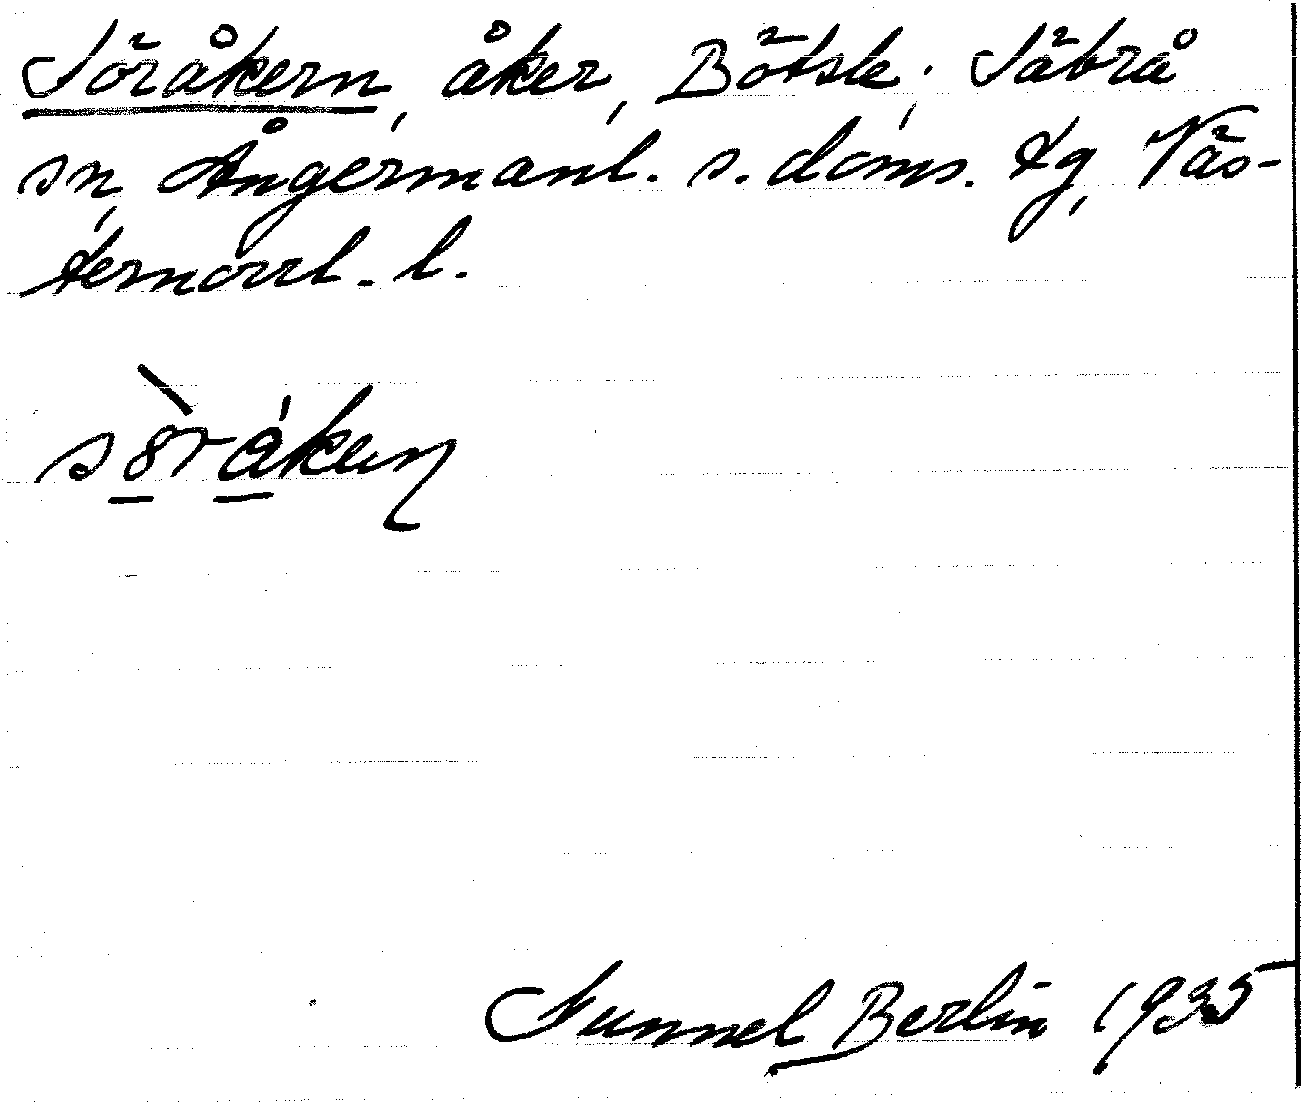 Söråkern, åker, Bötsle, Säbrå
sn, Ångermanl. s. doms. tg, Väs-
ternorrl. l.
Gunnel Berlin 1935